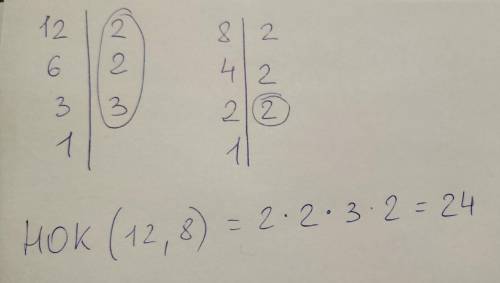 12 | 2 8 | 2
6 | 2 4 | 2
3 | 3 2 | 2
1 | 1 |
НОК (12, 8) = 2 · 2 · 3 · 2 = 24